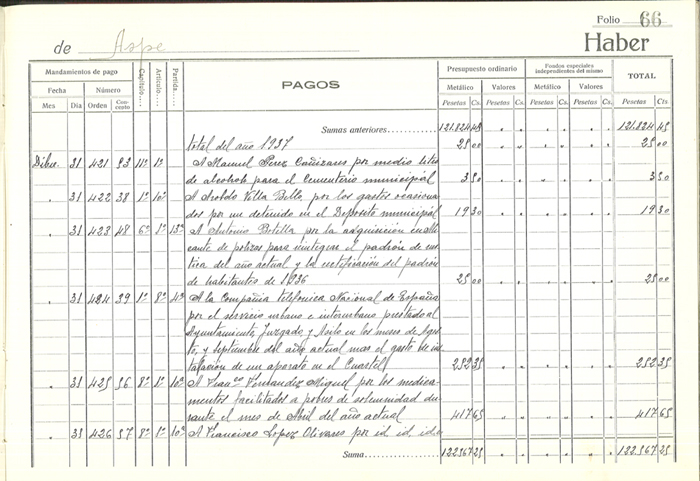 Folio 66
de Aspe Haber
Mandamientos de pago Capítulo Artículo Partida PAGOS Presupuesto ordinario Fondos especiales independientes del mismo TOTAL
Fecha Número Metálico Valores Metálico Valores
Mes Día Orden Concepto Pesetas Cs. Pesetas Cs. Pesetas Cs. Pesetas Cs. Pesetas Cts
Sumas anteriores 121.824 48 121.824 48
total del año 1937 25 00 25 00
Dibre. 31 421 53 11º 1º A Manuel Pérez Cañizares por medio litro
de alcohol para el Cementerio municipal 3 50 3 50
" 31 422 38 1º 10º A Aroldo Villa Bello, por los gastos ocasiona-
dos por un detenido en el Depósito municipal 19 30 19 30
" 31 423 48 6º 1º 13º A Antonio Botella por la adquisición en Ali-
cante de polizas para reintegrar el padrón de rus-
tica del año actual y la rectificación del padrón
de habitantes de 1936 25 00 25 00
" 31 424 39 1º 8º 4º A la Compañia telefonica Nacional de España
por el servicio urbano e interurbano prestado al
Ayuntamiento, Juzgado, y Asilo en los meses de Agos-
to, y Septiembre del año actual mas el gasto de ins-
talación de un aparato en el Cuartel 252 35 252 35
" 31 425 56 8º 1º 10º A Franco Fernandez Miguel por los medica-
mentos facilitados a pobres de solemnidad du-
rante el mes de Abril del año actual 417 65 417 65
" 31 426 57 8º 1º 10º A Francisco Lopez Olivares por id, id, id.
Suma 122.567 25 122.567 25